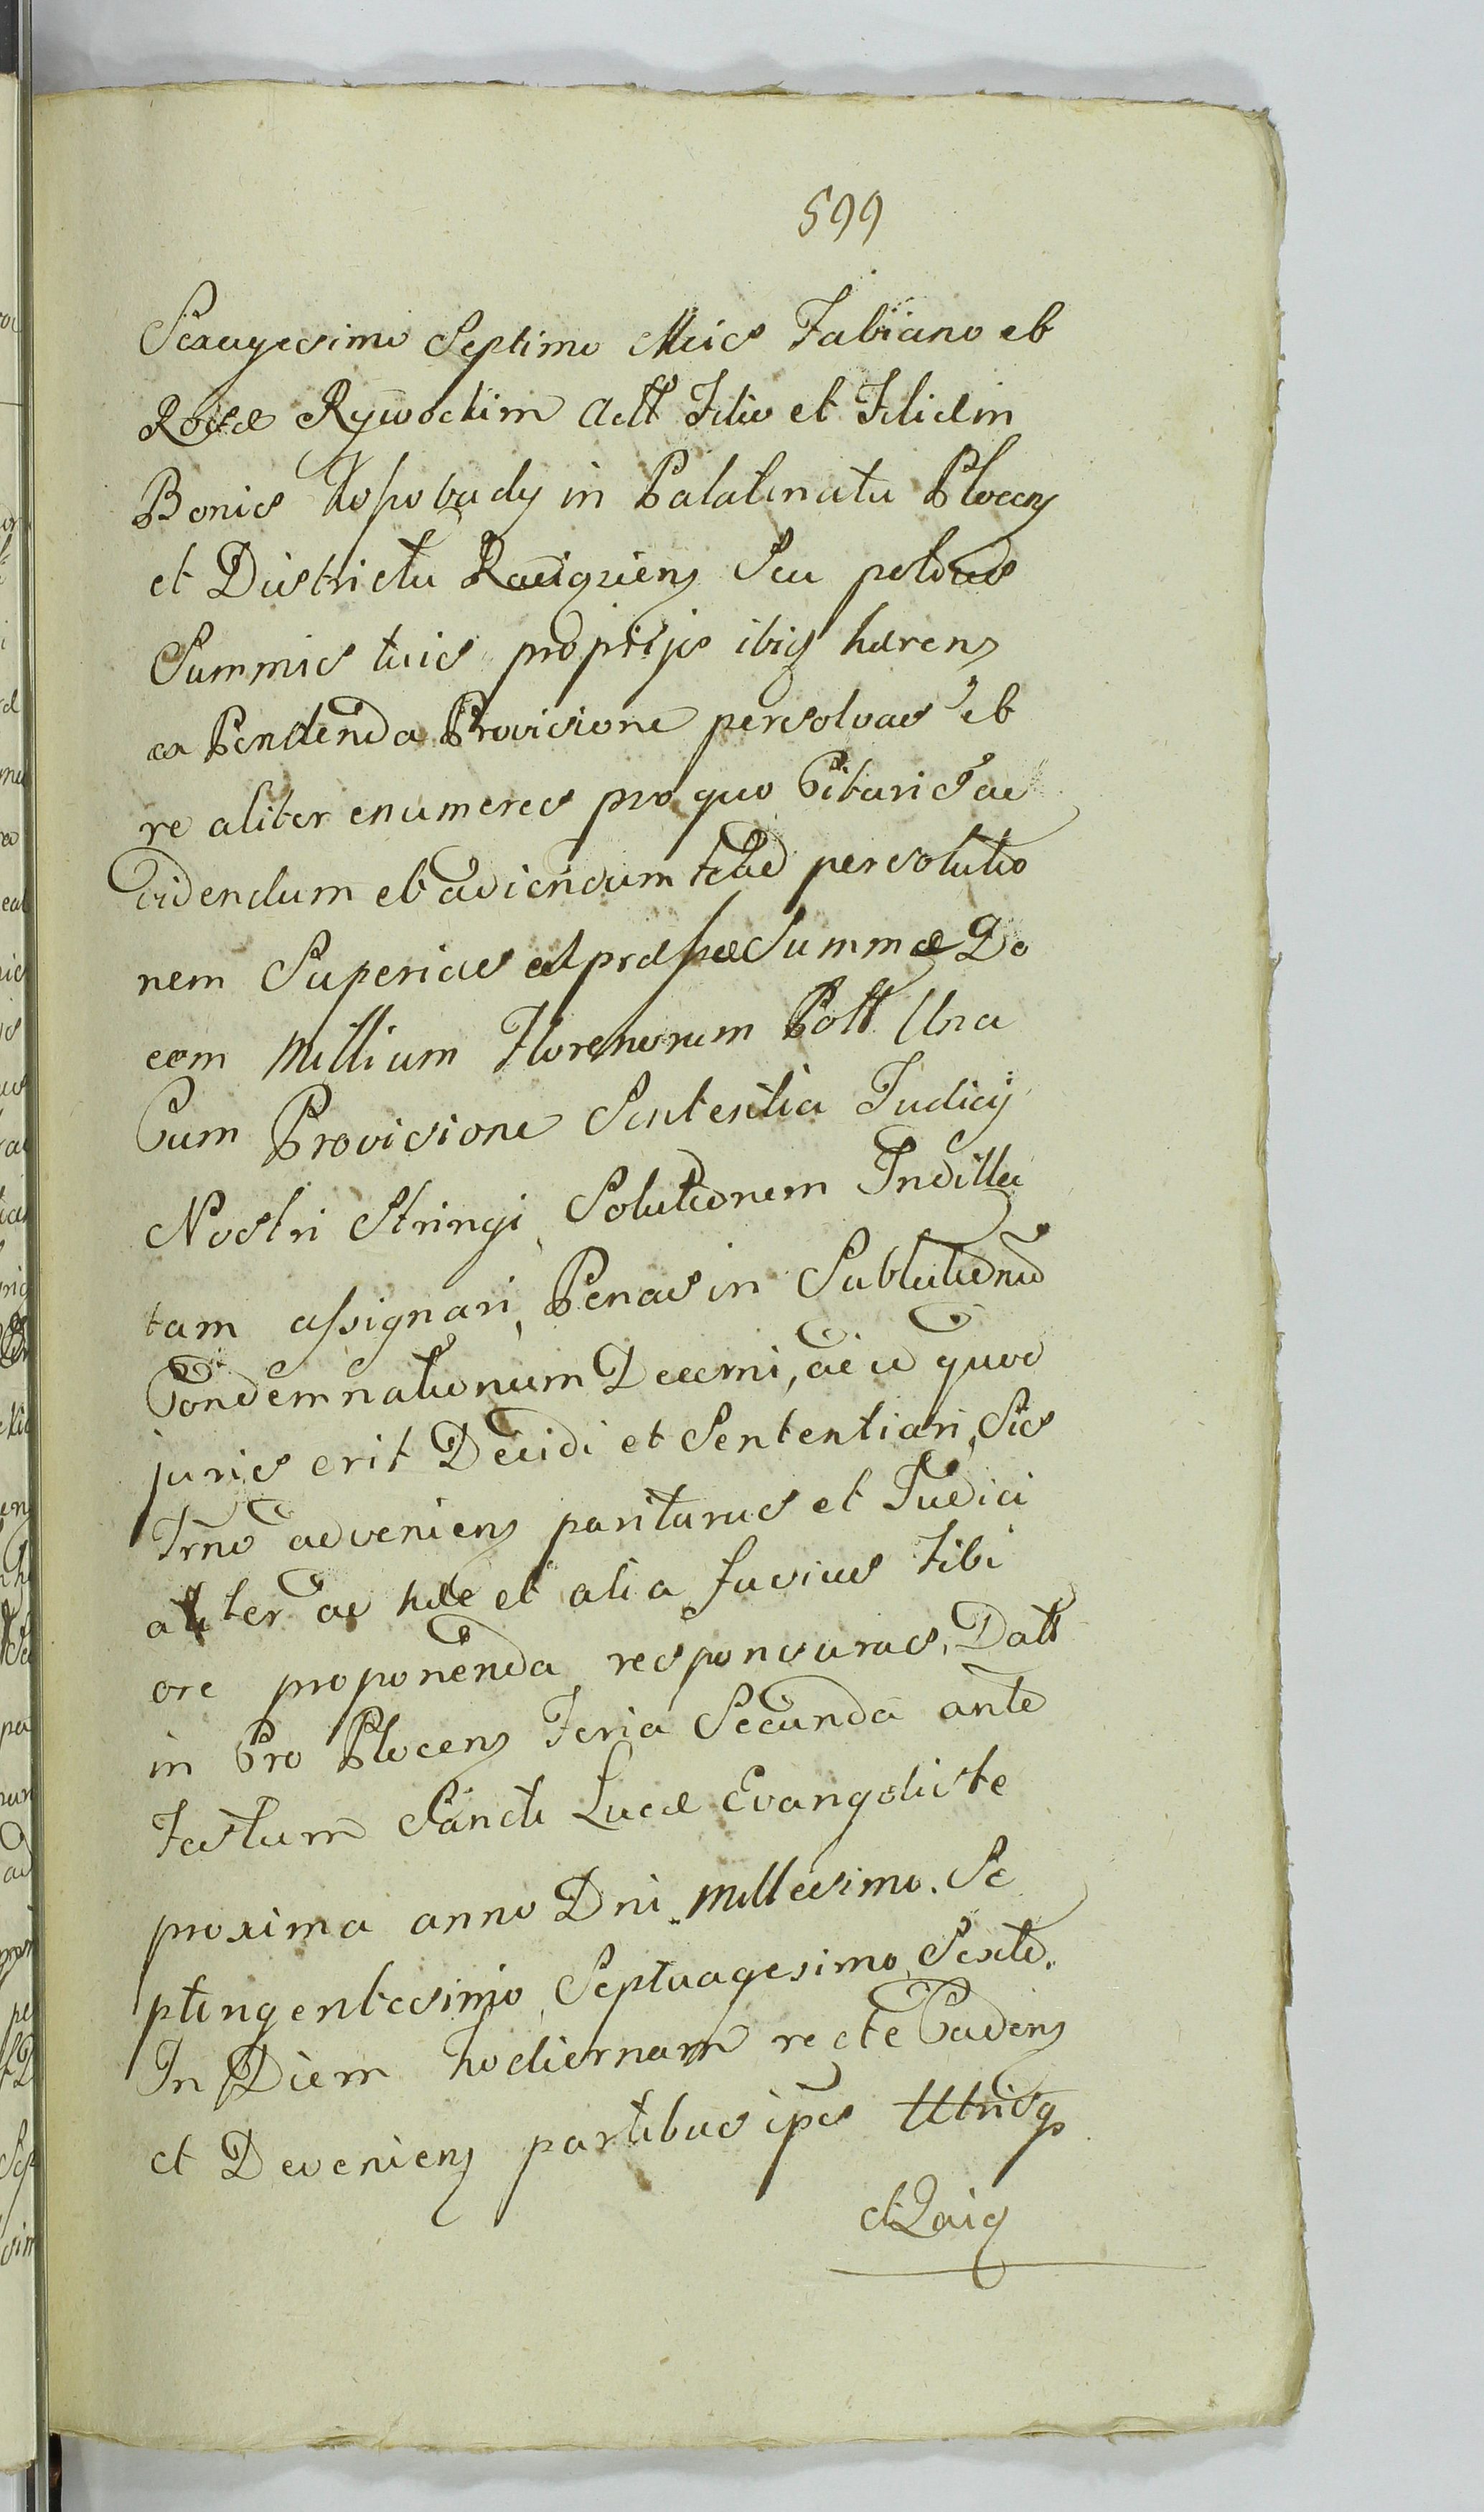 599
Sexagesimo Septimo Mcis Fabiano et
Rosæ Rywockim Actt Filio et Filiæ in
Bonis Kosobudy in Palatinatu Plocen
et Districtu Raciązien Seu potius
Summis tuis proprijs ibiq hæren
ex Pendenda Provisione persolvas et
re aliter enumeres pro quo Citaris ac
videndum et audiendum talē persolutio
nem Superius præfsæ Summæ De
cem Millium Florenorum Poll Una
Cum Provisione Sententia Judicij
Nostri Stringi, Solutionem Indilla
tam assignari, Penas in Sublutionē
Condemnationum Decerni, ac id quod
juris erit Decidi et Sententiari, Sis
Trno adveniens pariturus et Judici
aliter ac hæc et alia fusius tibi
ore proponenda responsurus, Datt
in Cro Plocen Feria Secunda ante
Festum Sancti Lucæ Evangeliste
proxima anno Dni Millesimo Se
ptingentesimo Septuagesimo Sexto.
In Diem hodiernam recte Cadens
et Deveniens partibus ipis Utrisq